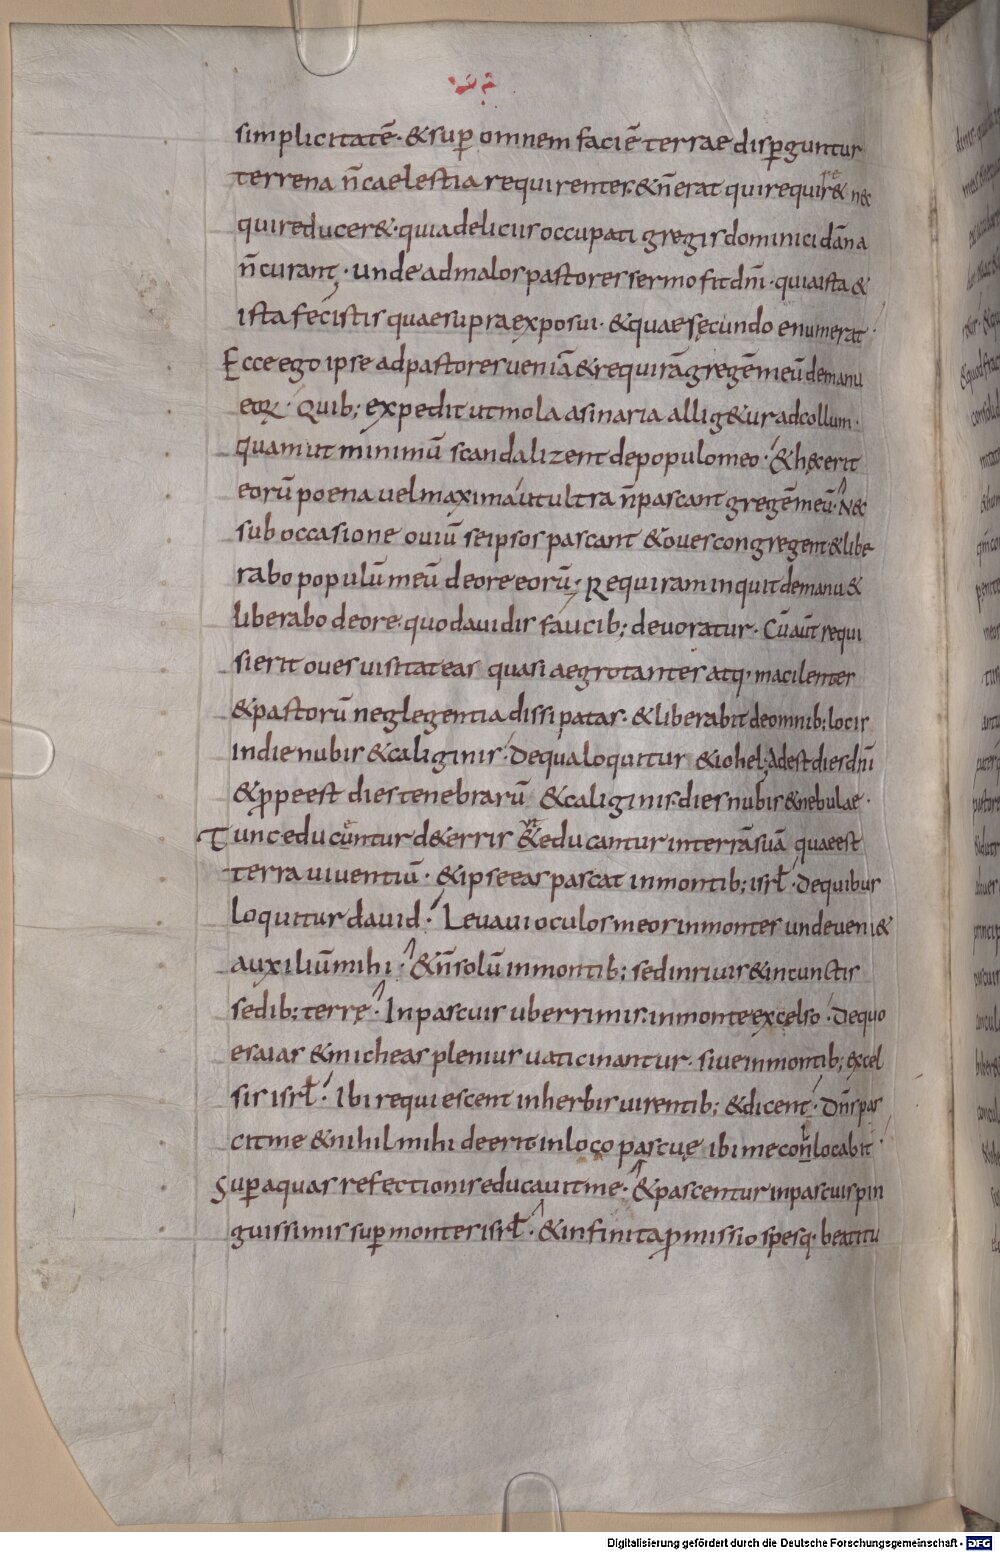 simplicitatē· & sup̄ omnem faciē terrae disp̄guntur
terrena n̄ caelestia requirentes· & n̄ erat qui requir& nec
qui reducer&· quia deliciis occupati gregis dominici dāna
n̄ curant· unde ad malos pastores sermo fit dn̄i· quia ista &
ista fecistis quae supra exposui· & quae secundo enumerat·
Ecce ego ipse ad pastores ueniā & requirā gregē meū de manu
eoꝝ· Quib; expedit ut mola asinaria allig&ur ad collum·
quam ut minimū scandalizent de populo meo· & hęc erit
eorū poena uel maxima ut ultra n̄ pascant gregē meū· Nec
sub occasione ouiū seipsos pascant & oues congregent & libe
rabo populū meū de ore eorū· Requiram inquit de manu &
liberabo de ore· quod auidis faucib; deuoratur· Cū aūt requi
sierit oues uisitat eas quasi aegrotantes atq· macilentes
& pastorū neglegentia dissipatas· & liberabit de omnib; locis
in die nubis & caliginis· De qua loquitur & iohel; Adest dies dn̄i
& ꝓpe est dies tenebrarū & caliginis· dies nubis & nebulae·
Tunc educuntur de terris & educantur in terrā suā quae est
terra uiuentiū· & ipse eas pascat in montib; isrł· De quibus
loquitur dauid· Leuaui oculos meos in montes unde ueni&
auxiliū mihi· & n̄ solū in montib; sed in riuis & in cunctis
sedib; terrę· In pascuis uberrimis· in monte excelso· De quo
esaias & micheas plenius uaticinantur· siue in montib; excel
sis isrł· Ibi requiescent in herbis uirentib; & dicent· Dn̄s pas
cit me & nihil mihi deerit in loco pascuę ibi me conlocabit·
Sup̄ aquas refectionis educauit me· & pascentur in pascuis pin
guissimis sup̄ montes isrł· & infinita ꝓmissio spesq· beatitu
Digitalisierung gefördert durch die Deutsche Forschungsgemeinschaft - DFG